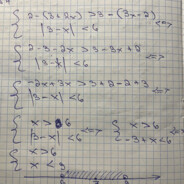 { 2-(3+2x) > 3-(3x-2)
{ |3-x| < 6 <=>
{ 2-3-2x > 3-3x+2
{ |3-x| < 6 <=>
{ -2x+3x > 3+2-2+3
{ |3-x| < 6 <=>
{ x > 6
{ |3-x| < 6 <=> { x > 6
{ -3+x < 6
{ x > 6
{ x < 9